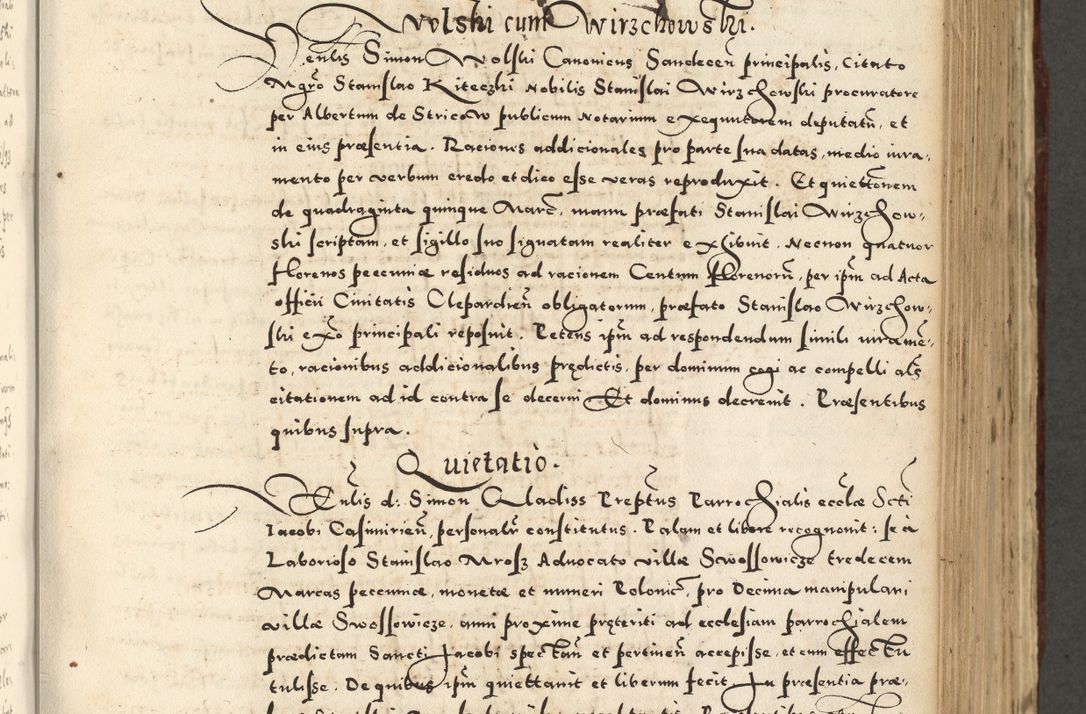 Wolski cum Wirzchowski.
Venlis Simon Wolski Canonicus Sandecen principalis, Citato
Mgro Stanislao Kiteczki Nobilis Stanislai Wirzchowski procuratore
per Albertum de Stricow publicum Notarium exequutorem deputatu, et
in eius præsentia. Raciones addicionales pro parte sua datas, medio iura,
mento per verbum credo et dico esse veras reproduxit. Et quiettonem
de quadraginta quinque Marc, manu præfati Stanislai Wirzchow,
ski scriptam, et sigillo suo signatam realiter exhibuit, Necnon quatuor
florenos pecuniæ residuos ad racionem Centum florenoru, per ipm ad Acta
officii Civitatis Clepardien obligatorum, præfato Stanislao Wirzchow,
ski exño principali reposuit. Petens ipm ad respondendum simili iurame,
to, racionibus addicionalibus prędictis, per dominum cogi ac compelli als
citationem ad id contra se decerni Et dominus decrevit. Præsentibus
quibus supra.
Quietatio.
Venlis d: Simon Gladiss Preptus Parrochialis ecclæ Scti
Iacobi Casimirien, personalr constitutus. Palam et libere recognovit: se à
Laborioso Stanislao Mrosz Advocato villæ Swossowicze tredecem
Marcas pecuniæ, monetæ et numeri Polonic, pro Decima manipulari
villæ Swossowicze, anni proxime pręteriti ad ecclesiam parrochialem
prædictam Sancti Iacobi spectan et pertinen accepisse, et cum effectu
tulisse. De quibus ipm quiettavit et liberum fecit In præsentia præ,